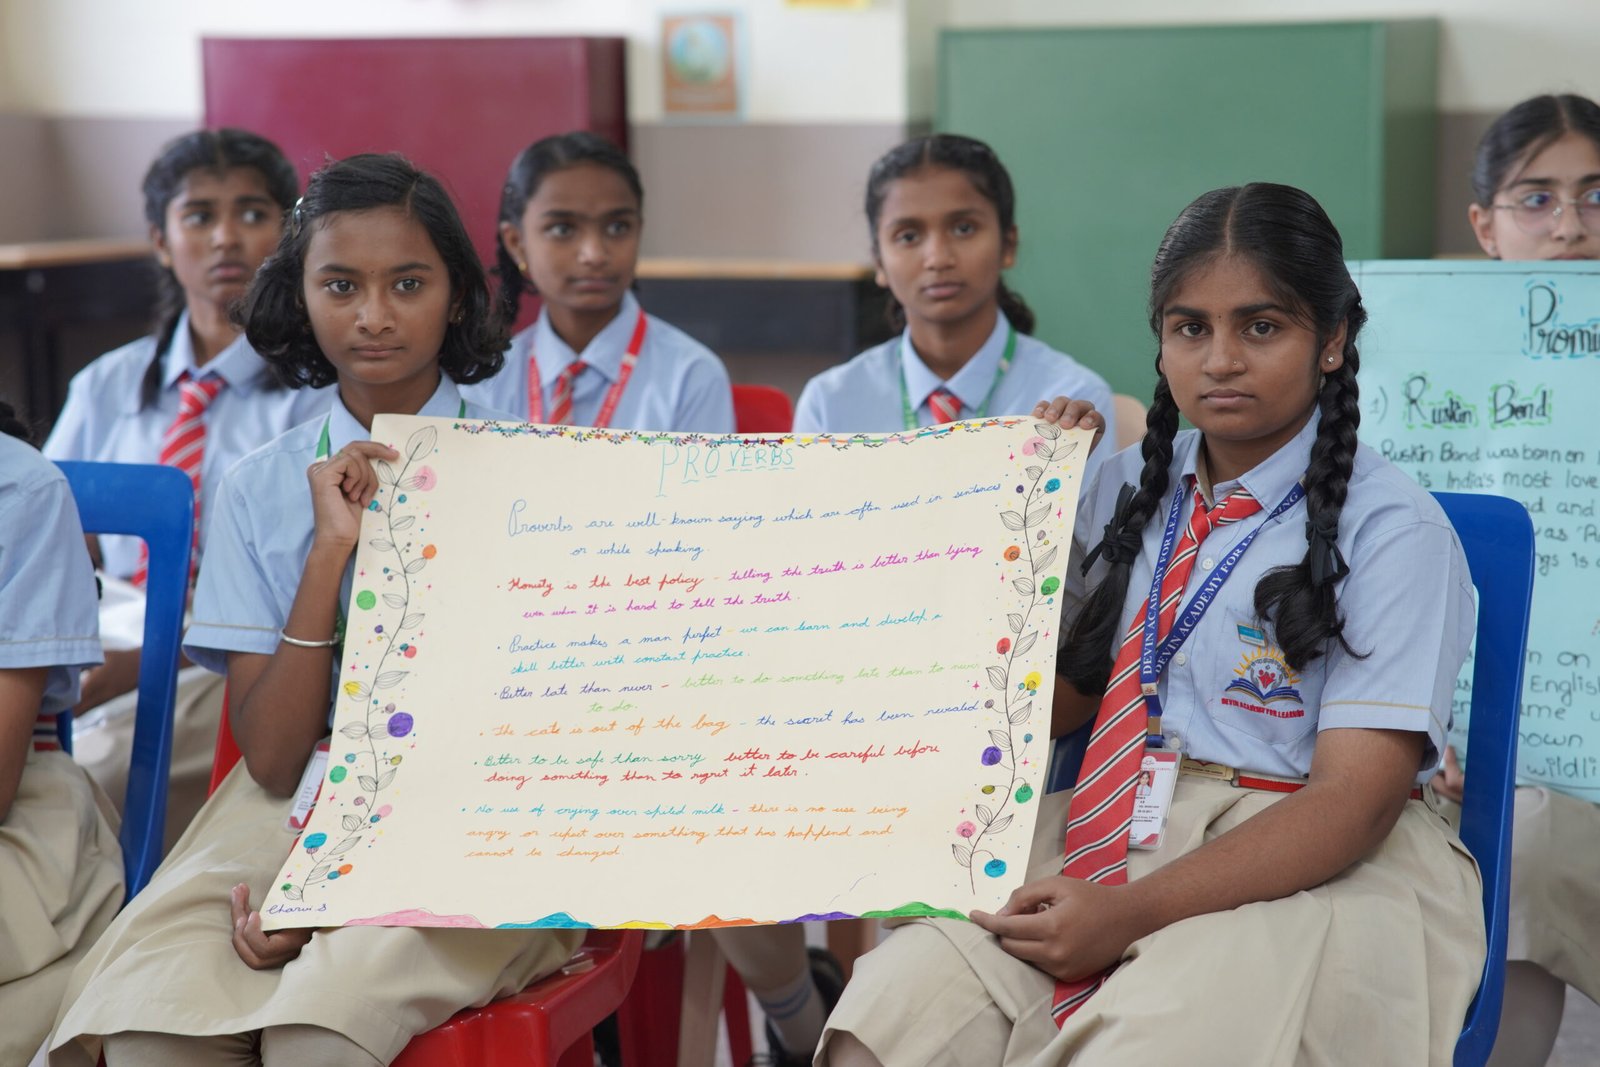 PROVERBS
Proverbs are well-known saying which are often used in sentences
or while speaking.
• Honesty is the best policy - telling the truth is better than lying
even when it is hard to tell the truth.
• Practice makes a man perfect - we can learn and develop a
skill better with constant practice.
• Better late than never - better to do something late than to never
to do.
• The cats is out of the bag - the secret has been revealed.
• Better to be safe than sorry better to be careful before
doing something than to regret it later.
• No use of crying over spiled milk - there is no use being
angry or upset over something that has happend and
cannot be changed.
Charvi S
DEVIN ACADEMY FOR LEARNING
DEVIN ACADEMY FOR LEARNING
DEVIN ACADEMY FOR LEARNING
1) Ruskin Bond
Ruskin Bond was born on
is India's most love
and
was
is
on
English